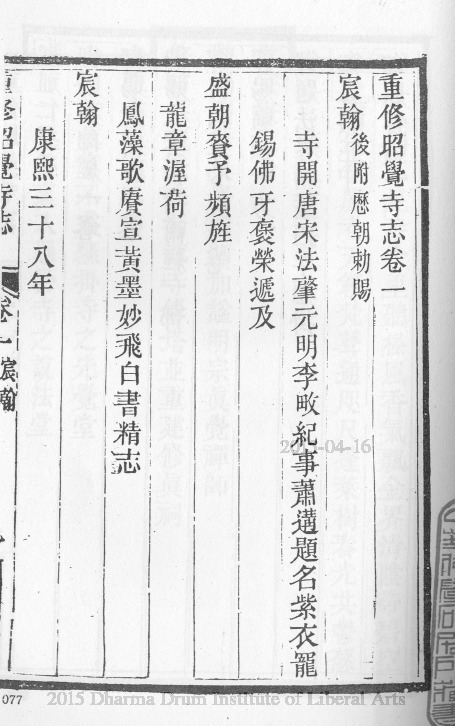 重修昭覺寺志卷一
宸翰後附歷朝勅賜
寺開唐宋法肇元明李畋紀事蕭遘題名紫衣寵
錫佛牙褒榮遞及
盛朝賚予頻旌
龍章渥荷
鳳藻歌賡宣黃墨妙飛白書精志
宸翰
康熙三十八年
重修昭覺寺志 卷一 宸翰
2015-04-16
077
2015 Dharma Drum Institute of Liberal Arts